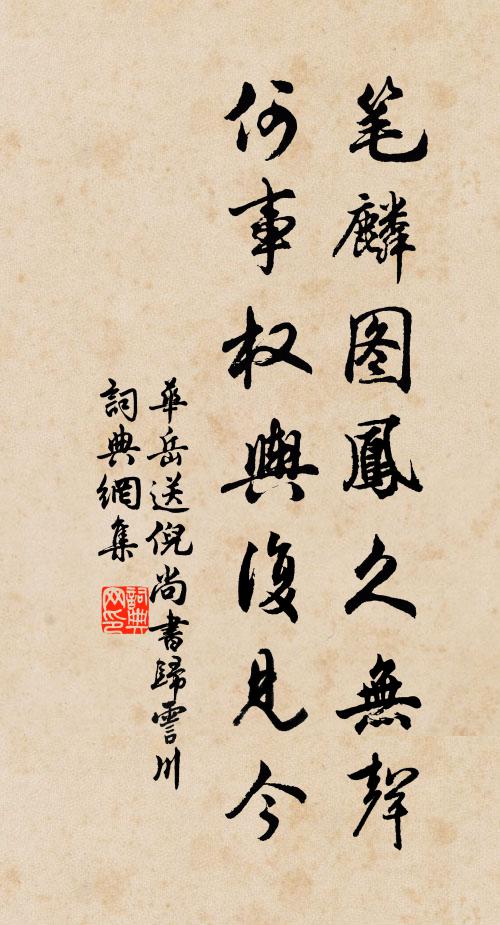 笔麟图鳳久無聲
何事权輿復見今
華岳送倪尚書歸霅川
詞典網集
詞典网印